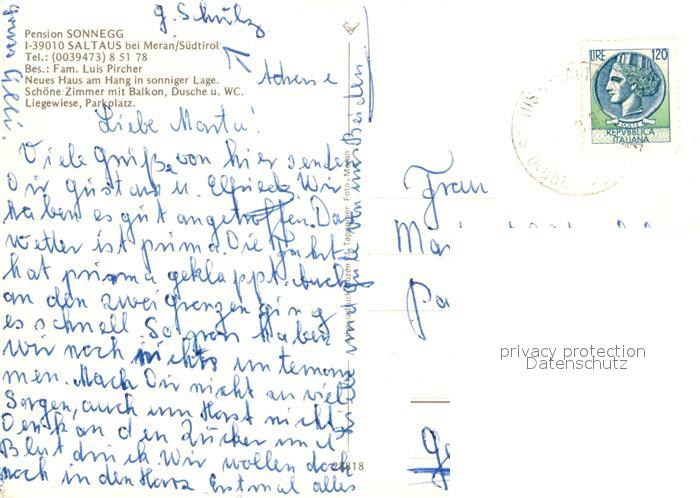 g. Schulz
Pension SONNEGG
I-39010 SALTAUS bei Meran/Südtirol
Tel.: (0039473) 8 51 78
Bes.: Fam. Luis Pircher
Neues Haus am Hang in sonniger Lage.
Schöne Zimmer mit Balkon, Dusche u. WC.
Liegewiese, Parkplatz.
Adresse
Liebe Marta!
Viele Grüße von hier sende
Dir Gustav u. Elfriede. Wir
haben es gut angetroffen. Das
Wetter ist prima. Die Fahrt
hat prima geklappt. Auch
an den zwei Grenzen ging
es schnell. So haben
wir noch nichts unternom
men. Mach Dir nicht zu viel
Sorgen, auch um Horst nicht
Denk an den Zucker und
Blutdruck. Wir wollen doch
noch in den Harz Erstmal alles
Gute von uns Beiden
28818
Frau
Mar
Pa
LIRE 120
REPVBBLICA
ITALIANA
privacy protection
Datenschutz